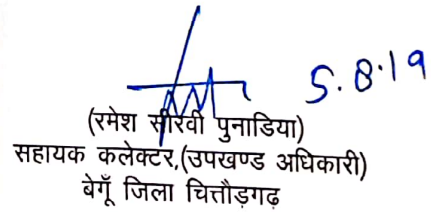 5.8.19
(रमेश सीरवी पुनाडिया)
सहायक कलेक्टर,(उपखण्ड अधिकारी)
बेगूँ जिला चित्तौड़गढ़